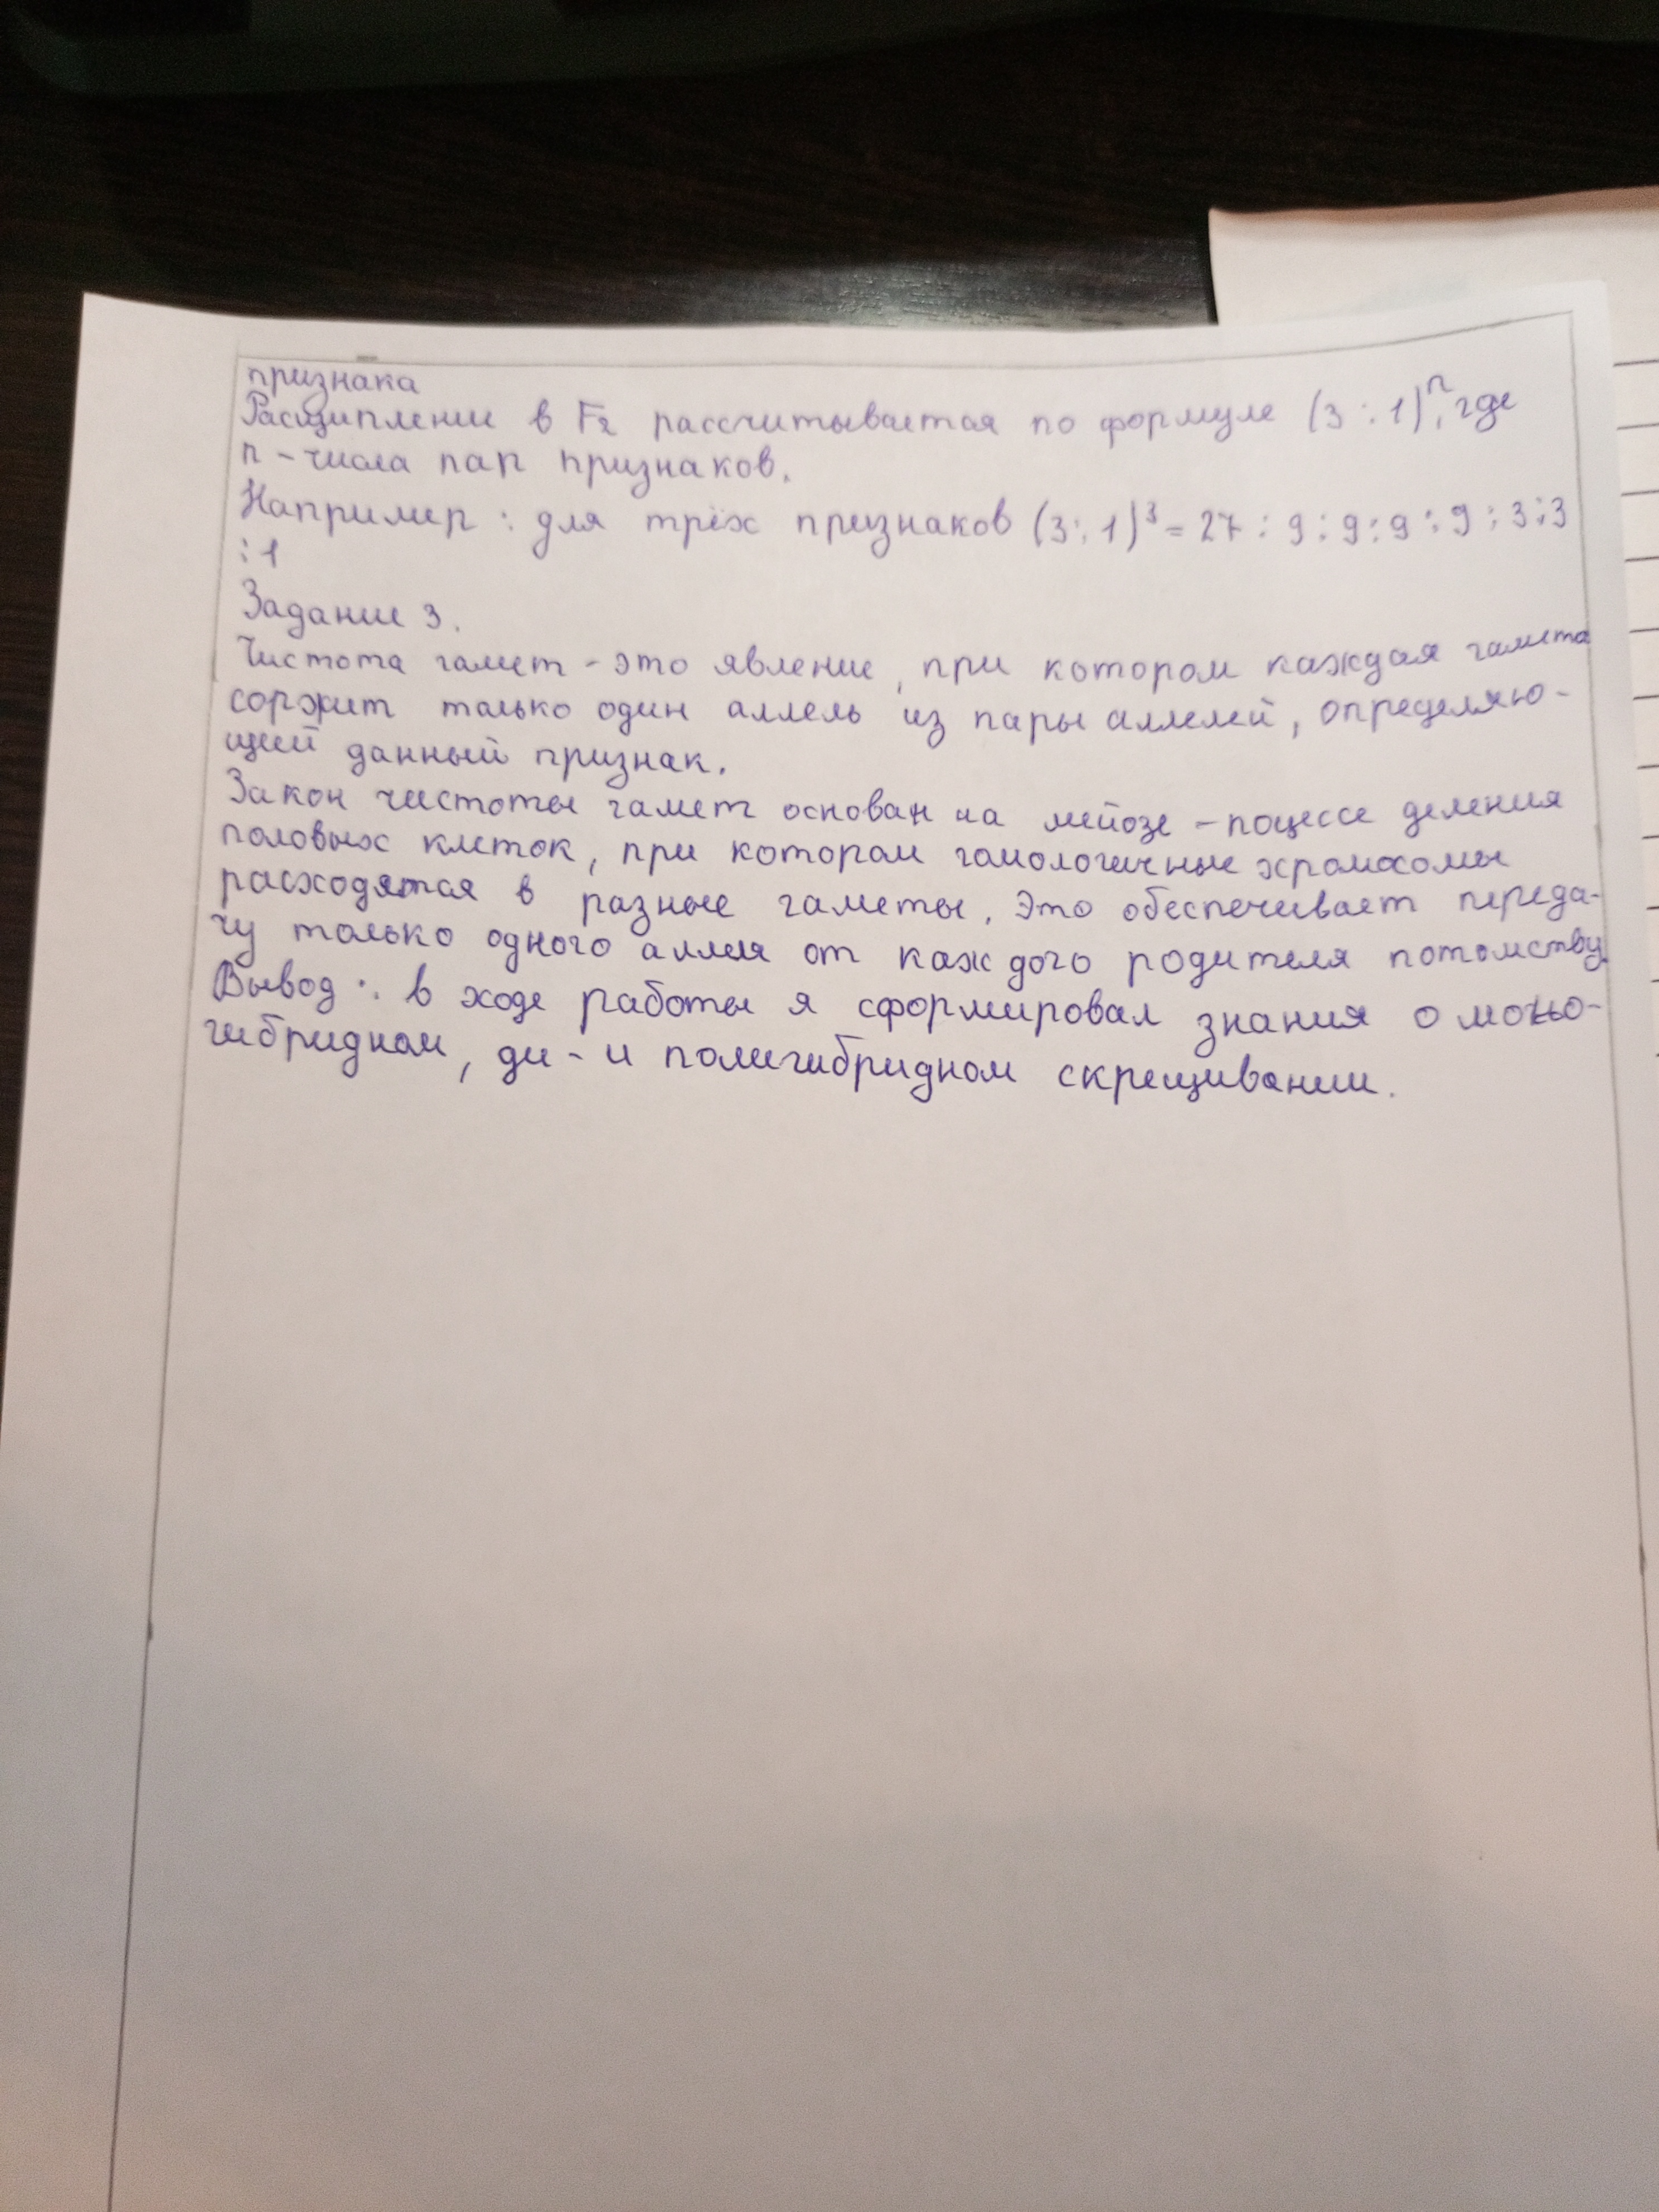 признака
Расщипление в F₂ рассчитывается по формуле (3:1)ⁿ, где
n - числа пар признаков.
Например: для трёх признаков (3:1)³ = 27:9:9:9:9:3:3
:1
Задание 3.
Чистота гамет - это явление, при котором каждая гамета
соржит только один аллель из пары аллелей, определяю-
щий данный признак.
Закон чистоты гамет основан на мейозе - поцессе деления
половых клеток, при котором гомологичные хромосомы
расходятся в разные гаметы. Это обеспечивает переда-
чу только одного аллея от каждого родителя потомству.
Вывод: в ходе работы я сформировал знания о моно-
гибридном, ди- и полигибридном скрещивании.